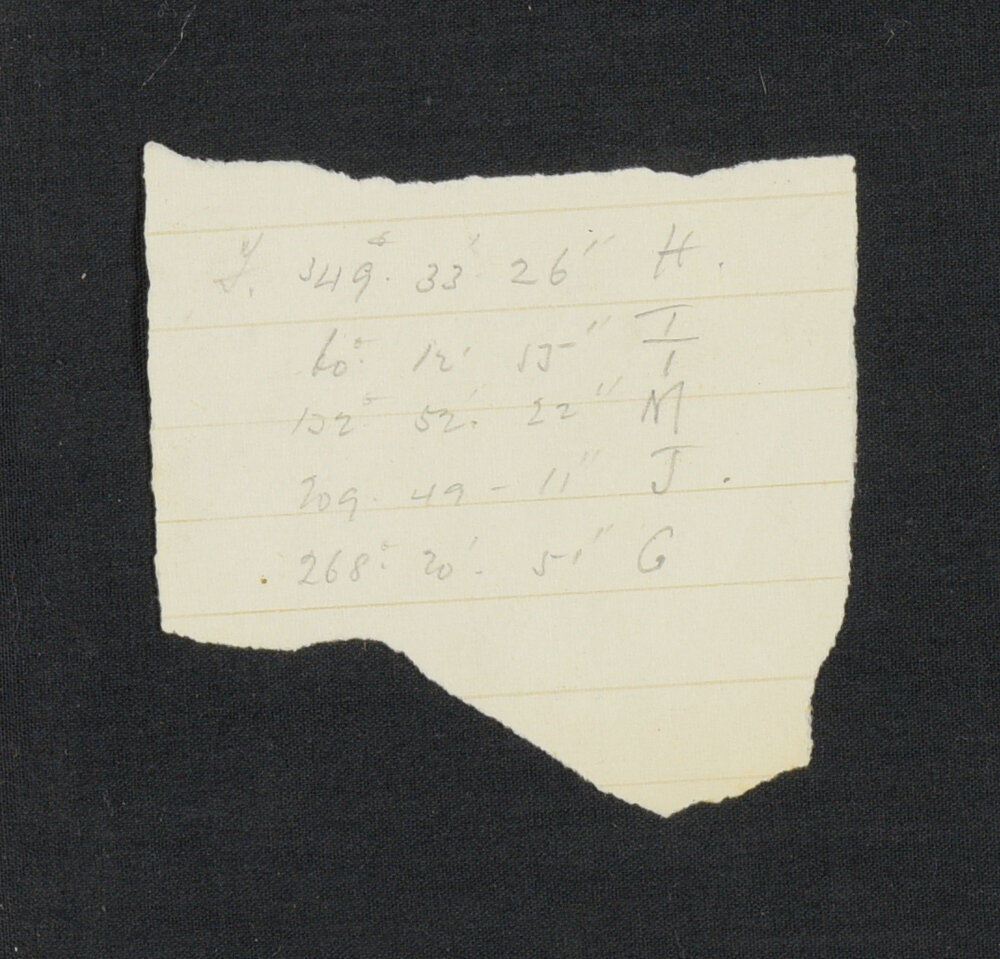 Y. 349° 33' 26" H.
60° 12' 15" I
132° 52' 22" M
209. 49 - 11" J.
268° 20' 51" G